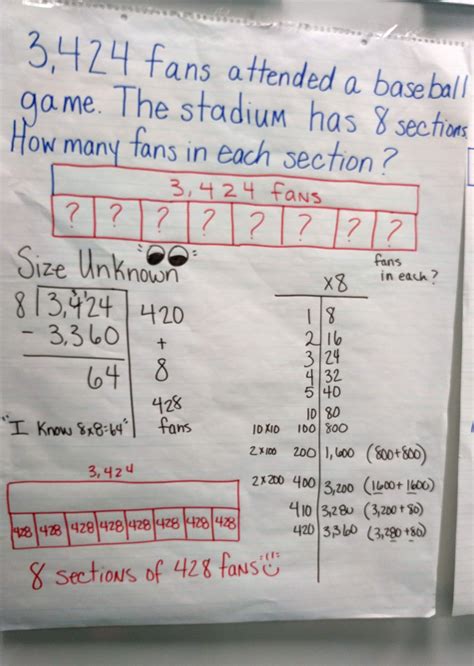 3,424 fans attended a baseball
game. The stadium has 8 sections
How many fans in each section?
3,424 fans
? ? ? ? ? ? ? ?
Size Unknown
fans
in each?
8 3,424 420
- 3,360 +
64 8
428
fans
"I know 8x8=64"
x8
1 8
2 16
3 24
4 32
5 40
10 80
10x10 100 800
2x100 200 1,600 (800+800)
2x200 400 3,200 (1600+1600)
410 3,280 (3,200+80)
420 3,360 (3,280+80)
3,424
428 428 428 428 428 428 428 428
8 sections of 428 fans